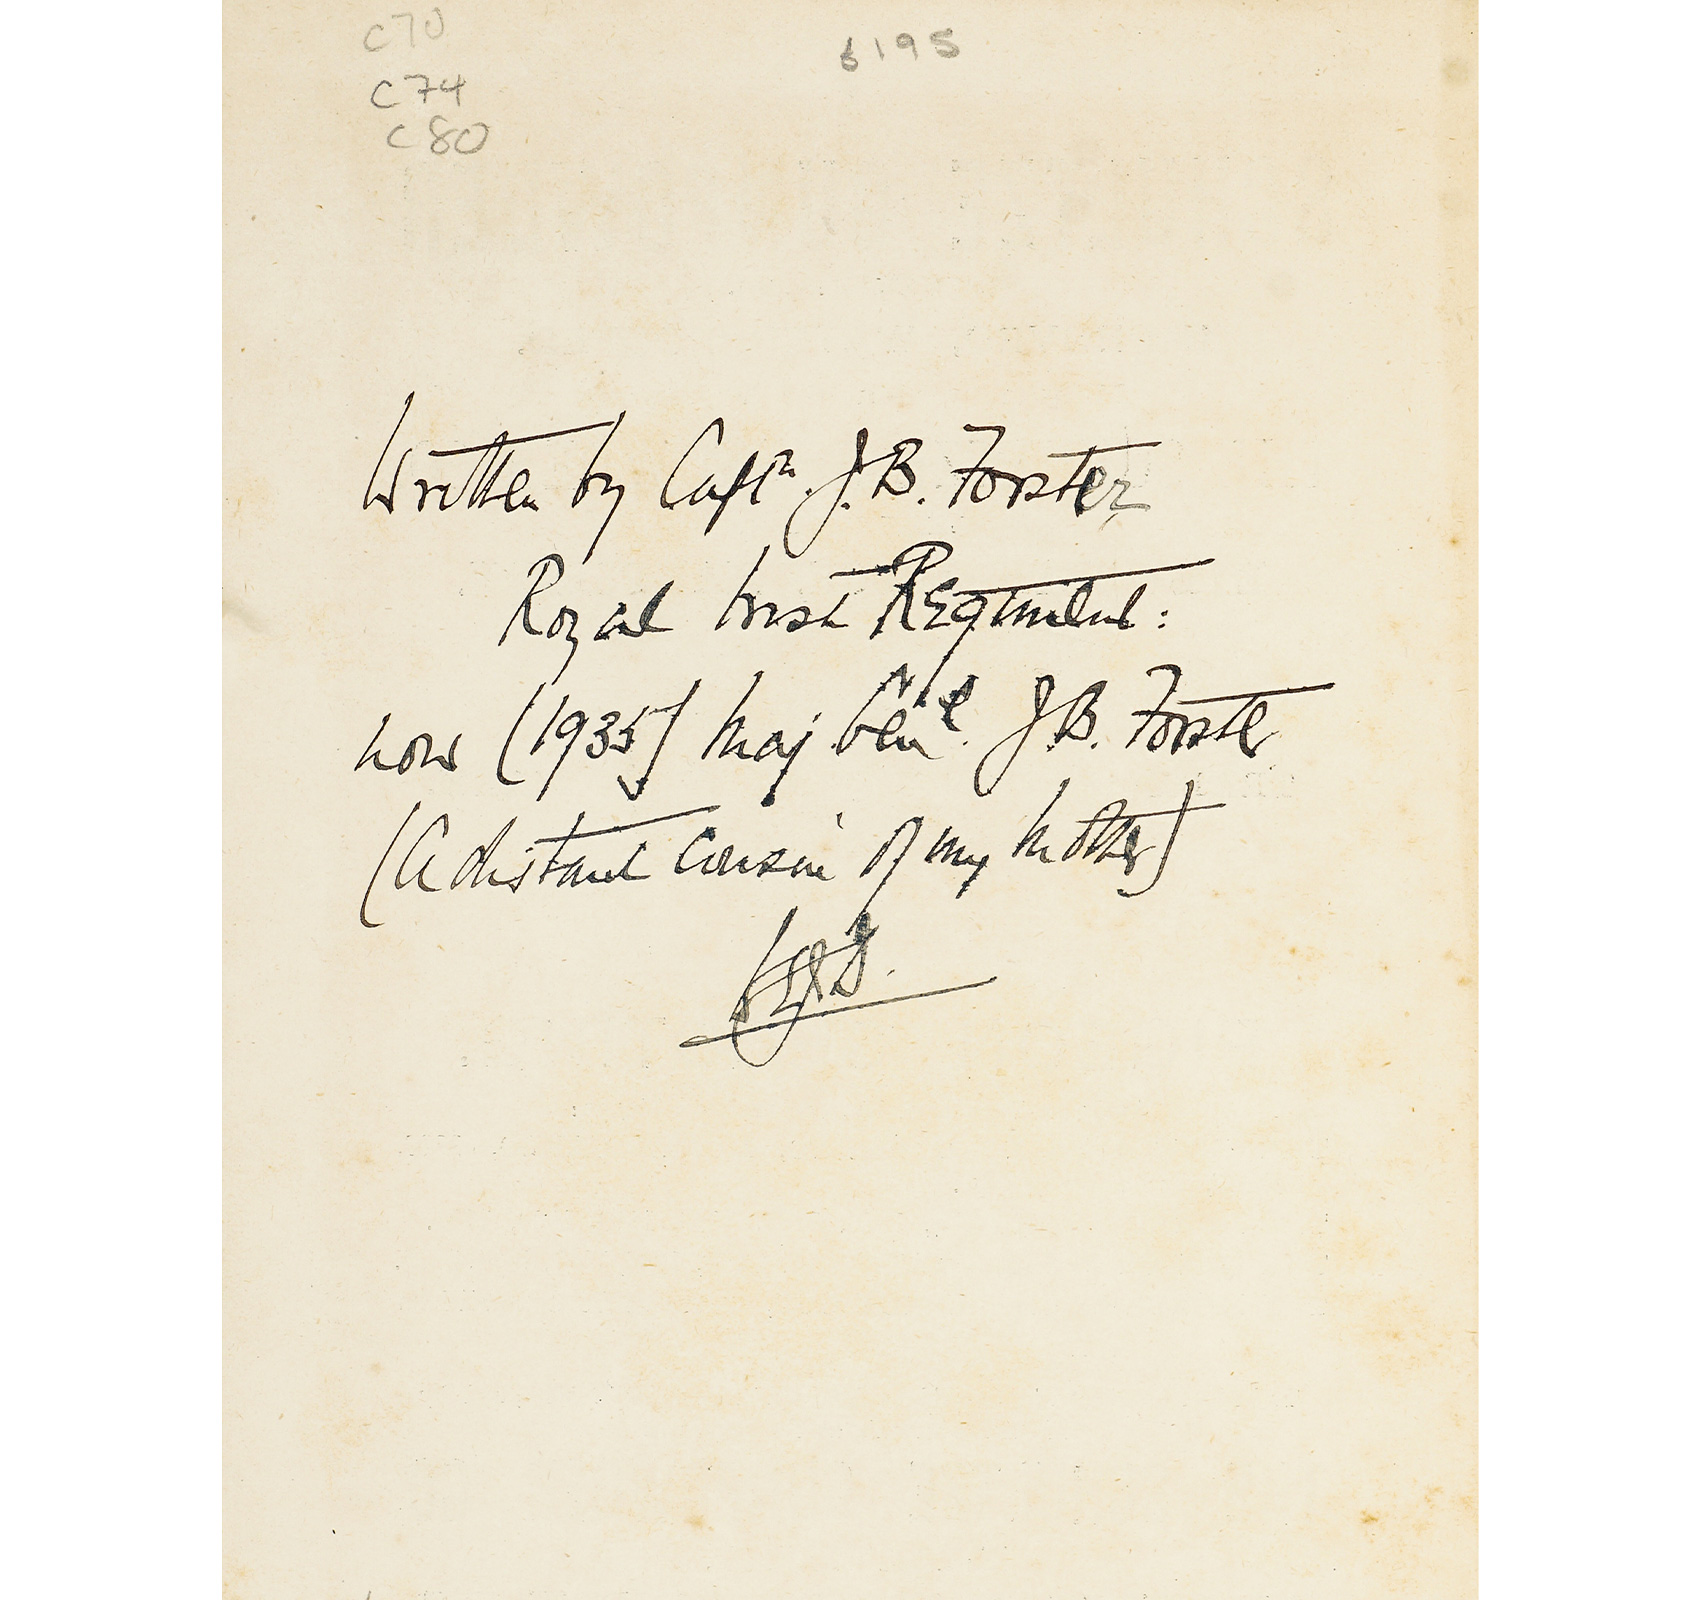 C70
6195
C74
C80
Written by Captn. J.B. Forster
Royal Irish Regiment:
now (1935) Maj. Genl. J.B. Forster
(A distant cousin of my Mother)